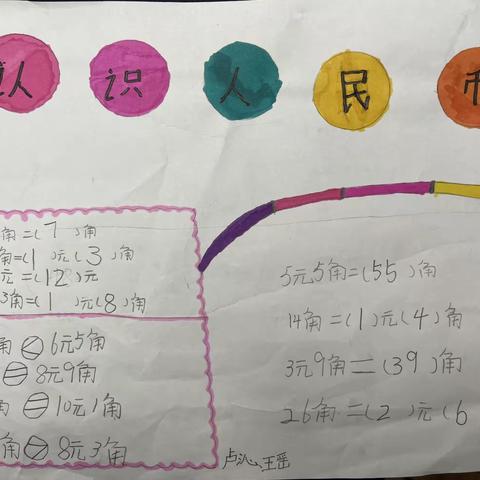 认识人民币
角=(7)角
角=(1)元(3)角
元=(12)元
3角=(1)元(8)角
角>6元5角
=8元9角
角=10元1角
角>8元3角
5元5角=(55)角
14角=(1)元(4)角
3元9角=(39)角
26角=(2)元(6
卢沁 王瑶